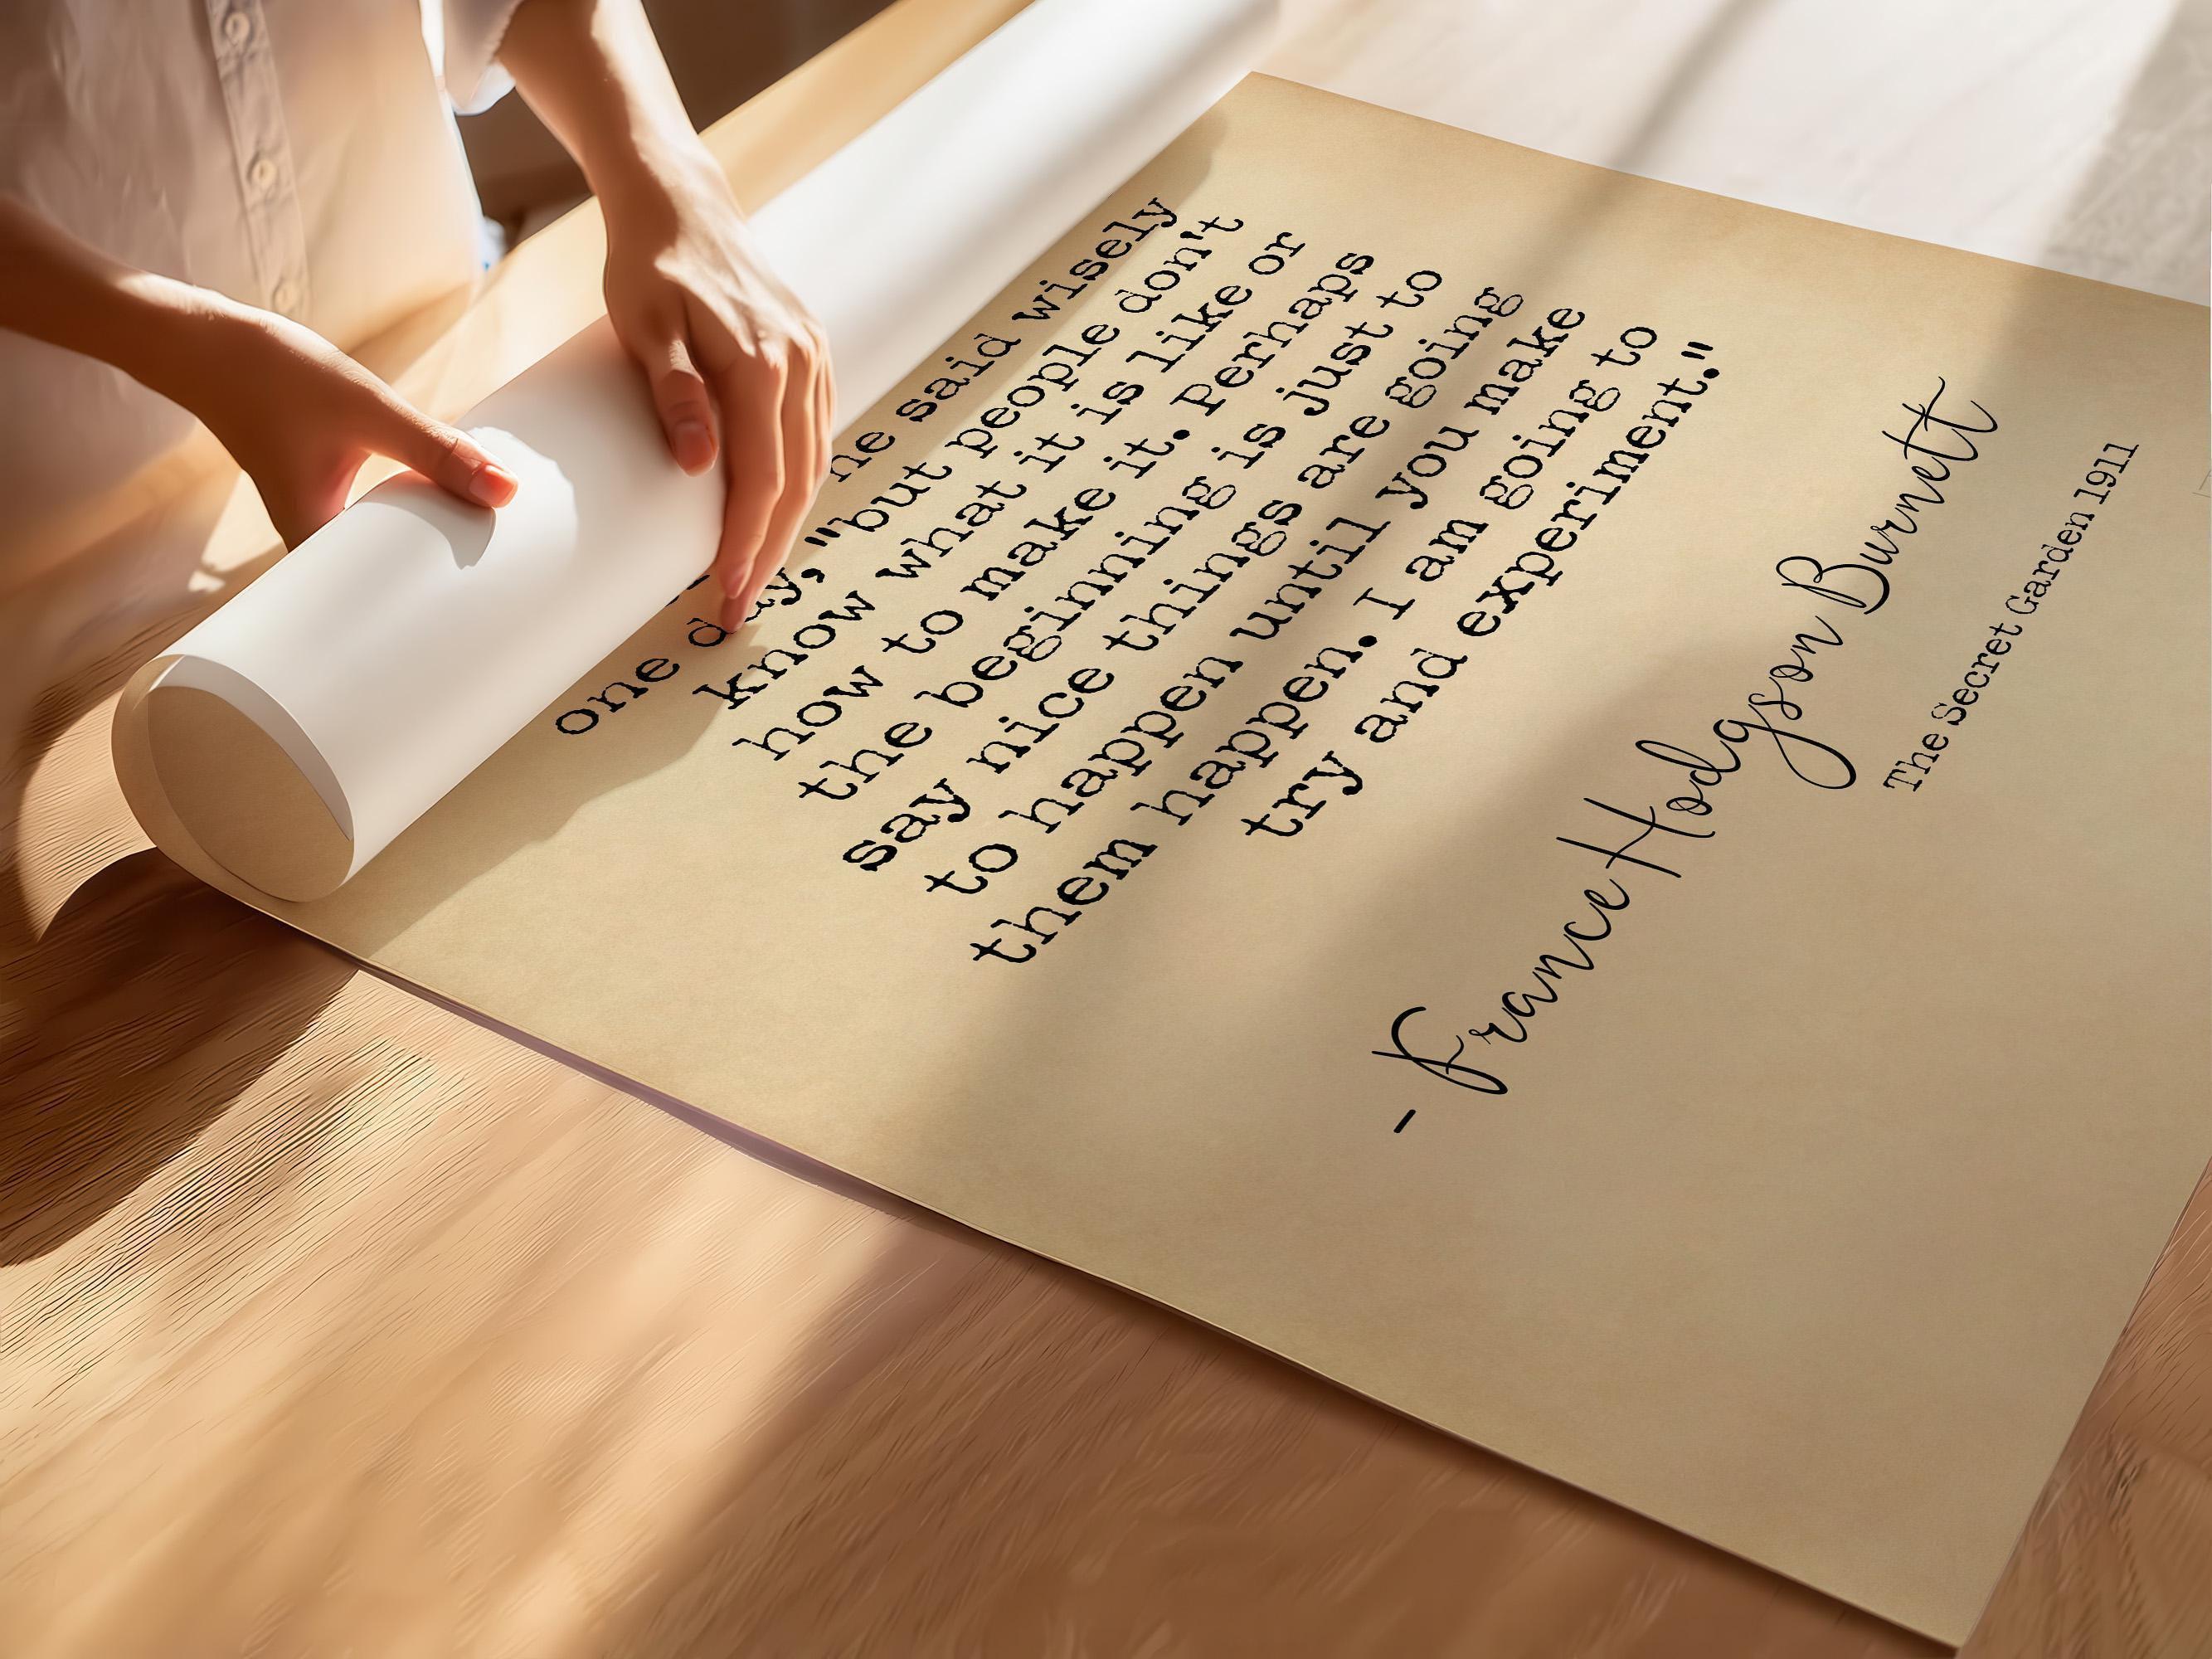 he said wisely
one day, "but people don't
know what it is like or
how to make it. Perhaps
the beginning is just to
say nice things are going
to happen until you make
them happen. I am going to
try and experiment."
- France Hodgson Burnett
The Secret Garden 1911